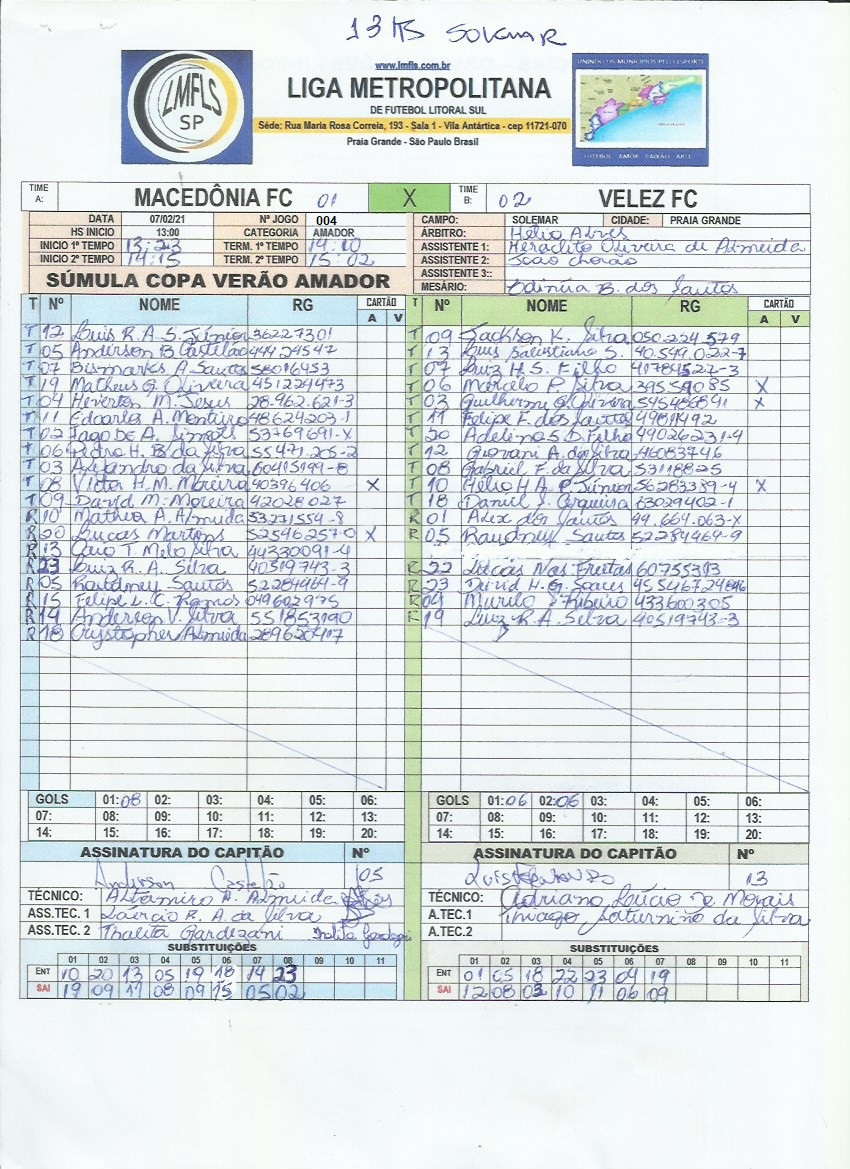 13 HS SOLEMAR
www.lmfls.com.br
LIGA METROPOLITANA
DE FUTEBOL LITORAL SUL
Séde: Rua Maria Rosa Correia, 193 - Sala 1 - Vila Antártica - cep 11721-070
Praia Grande - São Paulo Brasil
LMFLS
SP
UNINDO OS MUNICIPIOS PELO ESPORTE
FUTEBOL AMOR PAIXÃO ARTE
TIME A: MACEDÔNIA FC 01 X TIME B: 02 VELEZ FC
DATA 07/02/21 Nº JOGO 004 CAMPO: SOLEMAR CIDADE: PRAIA GRANDE
HS INICIO 13:00 CATEGORIA AMADOR ÁRBITRO: Hélio Alves
INICIO 1º TEMPO 13:23 TERM. 1º TEMPO 14:10 ASSISTENTE 1: Heraclito Oliveira de Almeida
INICIO 2º TEMPO 14:15 TERM. 2º TEMPO 15:02 ASSISTENTE 2: Joao Chorão
ASSISTENTE 3::
SÚMULA COPA VERÃO AMADOR MESÁRIO: B. dos Santos
T Nº NOME RG CARTÃO A V T Nº NOME RG CARTÃO A V
T 12 Luis R. A. S. Júnior 36227301 T 09 Jackson K. Silva 050.224.579
T 05 Anderson B Castelão 444124547 T 13 Luis Salustiano S. 40.549.022-7
T 07 Bismarks A. Santos 58016453 T 07 Luiz H. S. Filho 41784527-3
T 19 Matheus G. Oliveira 451224473 T 06 Marcelo P. Silva 39559085 X
T 04 Heverton M. Jesus 28.962.621-3 T 03 Guilherme G. Oliveira 545486841 X
T 11 Edoarla A. Monteiro 48624203-1 T 11 Felipe F. dos Santos 49811492
T 02 Iago DE A. Simões 53769691-X T 20 Adelino S. D. Filho 49026231-4
T 06 Pedro H. B. da Silva 55471.205-2 T 12 Giovani A. da Silva 46083746
T 03 Alejandro da Silva 60415199-8 T 08 Gabriel F. da Silva 53118825
T 08 Victor H. M. Moreira 40396406 X T 10 Hélio H A. P. Júnior 56283389-4 X
T 09 David M. Moreira 42028027 T 18 Daniel S. Cerqueira 63029402-1
R 10 Matheus A. Almeida 53271554-8 R 01 Alex dos Santos 44.664.063-X
R 20 Lucas Martins 52546257-0 X R 05 Raudney Santos 52284464-9
R 13 Caio T. Melo Silva 44330091-4
R 23 Luiz R. A. Silva 40519743-3 R 22 Lucas Nas Freitas 60755313
R 05 Raudney Santos 52284464-9 R 23 David H. G. Soares
R 15 Felipe L. C. Ramos 049602975 R 04 Murilo S Ribeiro 433600305
R 14 Anderson V. Silva 551853190 R 19 Luiz R. A. Silva 40519743-3
R 18 Crystopher Almeida 289620417
GOLS 01: 08 02: 03: 04: 05: 06: GOLS 01: 06 02: 06 03: 04: 05: 06:
07: 08: 09: 10: 11: 12: 13: 07: 08: 09: 10: 11: 12: 13:
14: 15: 16: 17: 18: 19: 20: 14: 15: 16: 17: 18: 19: 20:
ASSINATURA DO CAPITÃO Nº ASSINATURA DO CAPITÃO Nº
Anderson Castelão 05 13
TÉCNICO: Altamiro A. Almeida TÉCNICO: Adriano Lúcio De Morais
ASS.TEC. 1 Laércio R. A. da Silva A.TEC.1 Thiago Saturnino da Silva
ASS.TEC. 2 Thalita Gardezani A.TEC.2
SUBSTITUIÇÕES SUBSTITUIÇÕES
01 02 03 04 05 06 07 08 09 10 11 01 02 03 04 05 06 07 08 09 10 11
ENT 10 20 13 05 19 18 14 23 ENT 01 05 18 22 23 04 19
SAI 19 09 11 08 09 15 05 02 SAI 12 08 03 10 11 06 09